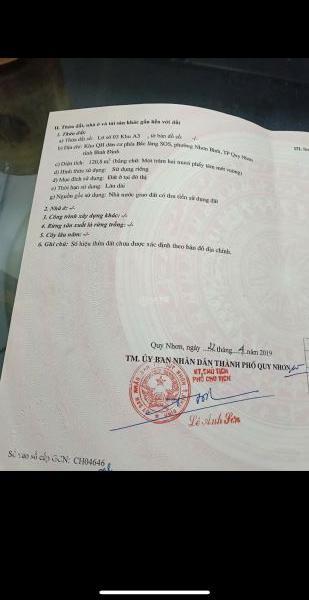 II. Thửa đất, nhà ở và tài sản khác gắn liền với đất
1. Thửa đất:
a) Thửa đất số: Lô số 03 Khu A3 , tờ bản đồ số: -/-
b) Địa chỉ: Khu QH dân cư phía Bắc làng SOS, phường Nhơn Bình, TP Quy Nhơn
tỉnh Bình Định
c) Diện tích: 120,8 m² (bằng chữ: Một trăm hai mươi phẩy tám mét vuông)
d) Hình thức sử dụng: Sử dụng riêng
đ) Mục đích sử dụng: Đất ở tại đô thị
e) Thời hạn sử dụng: Lâu dài
g) Nguồn gốc sử dụng: Nhà nước giao đất có thu tiền sử dụng đất
2. Nhà ở: -/-
3. Công trình xây dựng khác: -/-
4. Rừng sản xuất là rừng trồng: -/-
5. Cây lâu năm: -/-
6. Ghi chú: Số hiệu thửa đất chưa được xác định theo bản đồ địa chính.
Quy Nhơn, ngày tháng 4 năm 2019
TM. ỦY BAN NHÂN DÂN THÀNH PHỐ QUY NHƠN
KT.CHỦ TỊCH
PHÓ CHỦ TỊCH
Lê Anh Sơn
Số vào sổ cấp GCN: CH04646